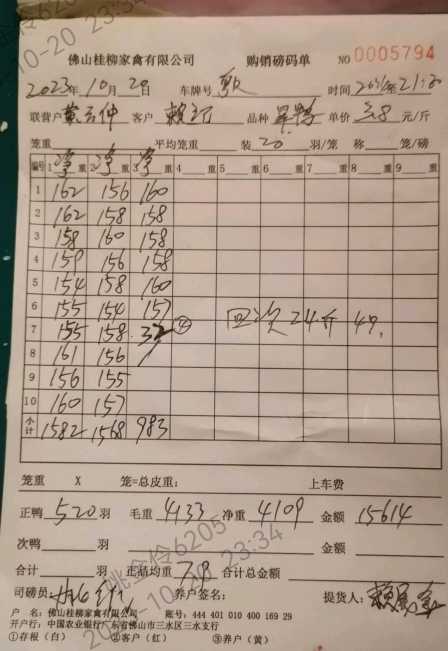 佛山桂柳家禽有限公司 购销磅码单 NO 0005794
2023年10月20日 车牌号 时间
联营户 客户 品种 单价 3.8 元/斤
笼重 平均笼重 装 20 羽/笼 称 笼/磅
编号 1 净重 2 净重 3 净重 4 重 5 重 6 重 7 重 8 重 9 重
1 162 156 160
2 162 158 158
3 158 160 158
4 159 156 158
5 154 158 160
6 155 154 157
7 155 158 32 ④ 回次 24斤 4只
8 161 156
9 156 155
10 160 157
小计 1582 1568 983
笼重 X 笼=总皮重: 上车费
正鸭 520 羽 毛重 4133 净重 4109 金额 15614
次鸭 羽 金额
合计 羽 正品均重 7.9 合计总金额
司磅员: 养户签名: 提货人:
户 名: 佛山桂柳家禽有限公司 账号: 444 401 010 400 169 29
开户行: 中国农业银行广东省佛山市三水区三水支行
①存根(白) ②客户(红) ③养户(黄)